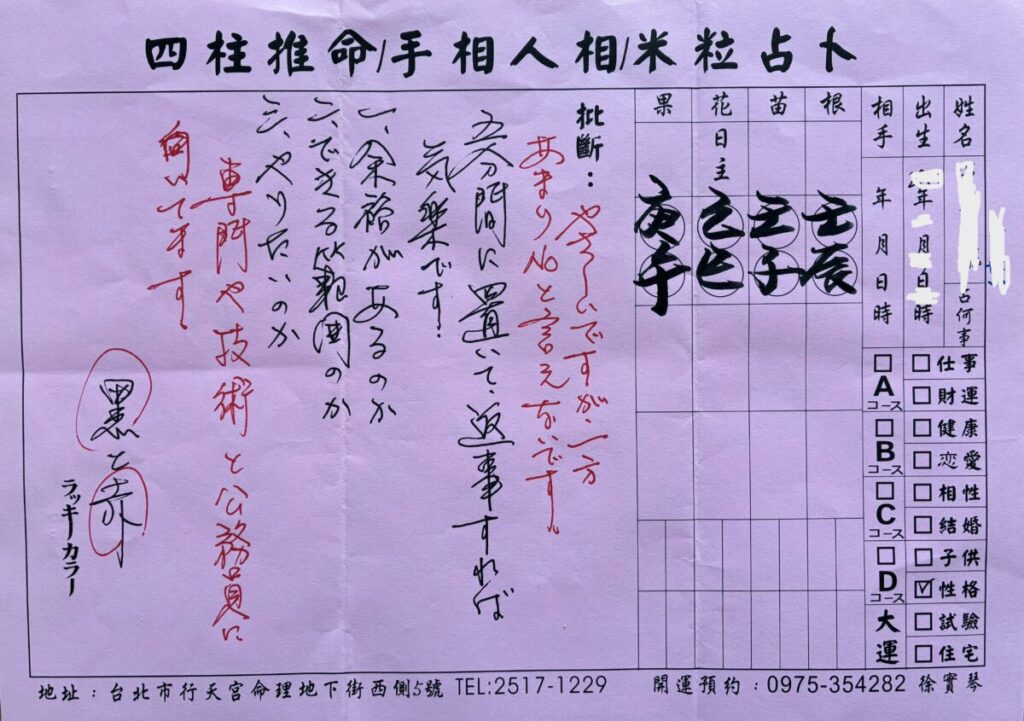 四柱推命/手相人相/米粒占卜
姓名
占何事
出生 年 月 日 時
相手 年 月 日 時
根 苗 花 果
日主
壬 壬 己 庚
辰 子 巳 午
□仕事
□財運
□健康
□恋愛
□相性
□結婚
□子供
☑性格
□試驗
□住宅
□Aコース
□Bコース
□Cコース
□Dコース
大運
批斷:
やさしいですが、一方
あまりNoと言えないです。
五分間に置いて、返事すれば
気楽です!
一、余裕があるのか
二、できる範囲のか
三、やりたいのか
専門や技術と公務員に
向いてます。
黒と赤
ラッキーカラー
地址:台北市行天宮命理地下街西側5號 TEL:2517-1229
開運預約:0975-354282 徐實琴